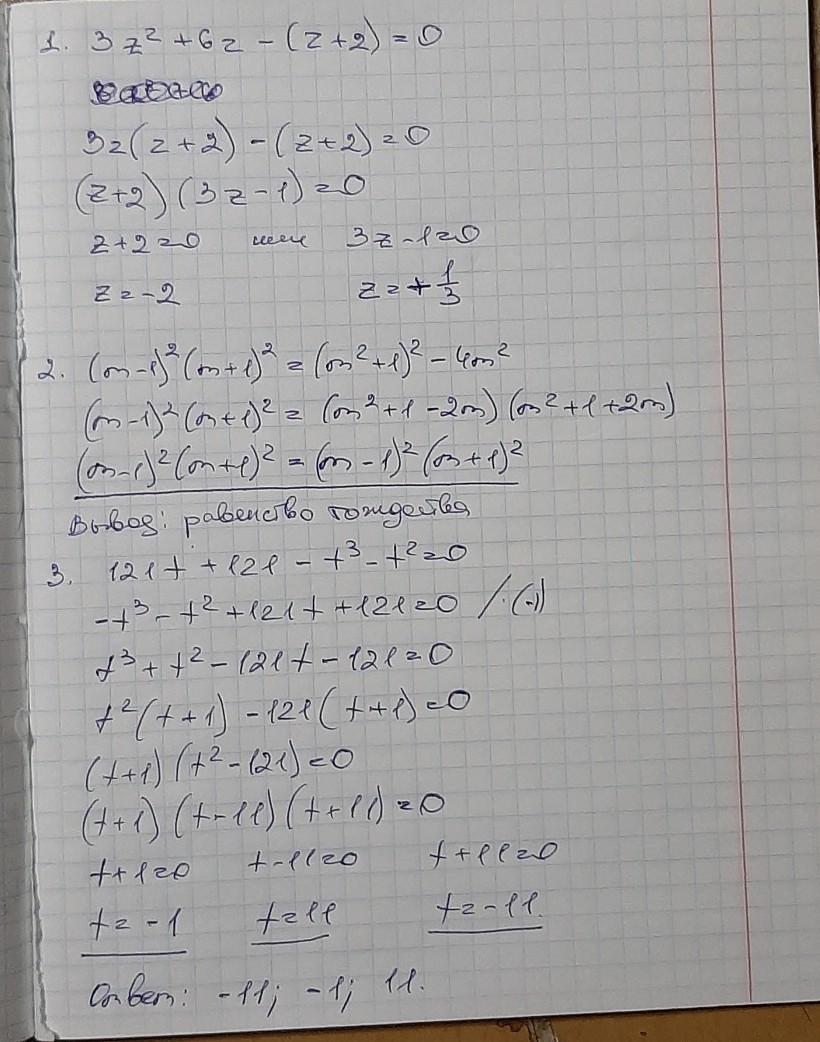 1. 3z² + 6z - (z+2) = 0
3z(z+2) - (z+2) = 0
(z+2)(3z-1) = 0
z+2=0 или 3z-1=0
z=-2 z=+1/3
2. (m-1)²(m+1)² = (m²+1)² - 4m²
(m-1)²(m+1)² = (m²+1-2m)(m²+1+2m)
(m-1)²(m+1)² = (m-1)²(m+1)²
Вывод: равенство тождества
3. 121t + 121 - t³ - t² = 0
-t³ - t² + 121t + 121 = 0 /·(-1)
t³ + t² - 121t - 121 = 0
t²(t+1) - 121(t+1) = 0
(t+1)(t²-121) = 0
(t+1)(t-11)(t+11) = 0
t+1=0 t-11=0 t+11=0
t=-1 t=11 t=-11.
Ответ: -11; -1; 11.